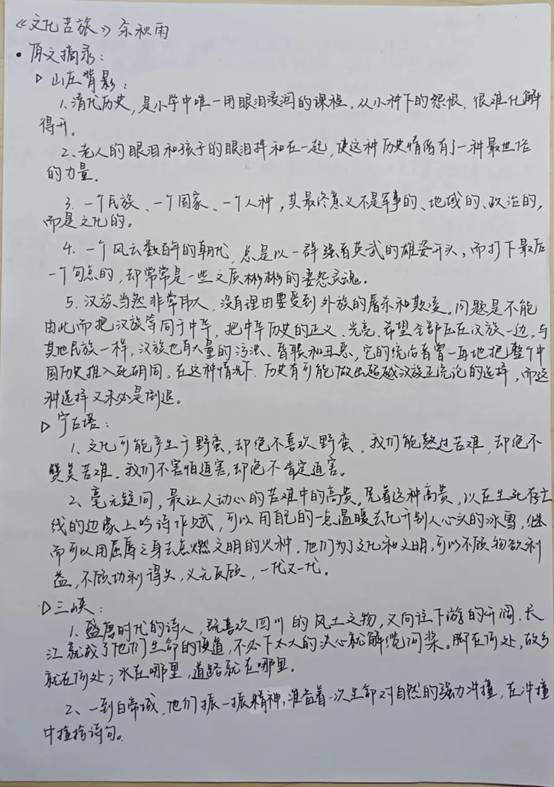 《文化苦旅》余秋雨
• 原文摘录：
▷ 山庄背影：
1. 清代历史，是小学中唯一用眼泪浸润的课程。从小种下的怨恨，很难化解
得开。
2、老人的眼泪和孩子的眼泪拌和在一起，使这种历史情绪有了一种最世俗
的力量。
3. 一个民族、一个国家、一个人种，其最终意义不是军事的、地域的、政治的，
而是文化的。
4. 一个风云数百年的朝代，总是以一群强者英武的雄姿开头，而打下最后
一个句点的，却常常是一些文质彬彬的凄怨灵魂。
5. 汉族当然非常伟大，没有理由要受到外族的屠杀和欺凌。问题是不能
由此而把汉族等同于中华，把中华历史的正义、光亮、希望全部压在汉族一边。与
其他民族一样，汉族也有大量的污浊、昏聩和丑恶，它的统治者曾一再地把整个中
国历史推入死胡同。在这种情况下，历史有可能做出超越汉族正统论的选择，而这
种选择又未必是倒退。
▷ 宁古塔：
1. 文化可能产生于野蛮，却绝不喜欢野蛮。我们能熬过苦难，却绝不
赞美苦难。我们不害怕迫害，却绝不肯定迫害。
2、毫无疑问，最让人动心的苦难中的高贵。凭着这种高贵，人可以在生死存亡
线的边缘上吟诗作赋，可以用自己的一点温暖去化开别人心头的冰雪，继
而可以用屈辱之身去点燃文明的火种。他们为了文化和文明，可以不顾物欲利
益，不顾功利得失，义无反顾，一代又一代。
▷ 三峡：
1. 盛唐时代的诗人，既喜欢四川的风土文物，又向往下游的开阔，长
江就成了他们生命的便道，不必下太大的决心就解缆问桨。脚在何处，故乡
就在何处；水在哪里，道路就在哪里。
2、一到白帝城，他们振一振精神，准备着一次生命对自然的强力冲撞，在冲撞
中捶拾诗句。